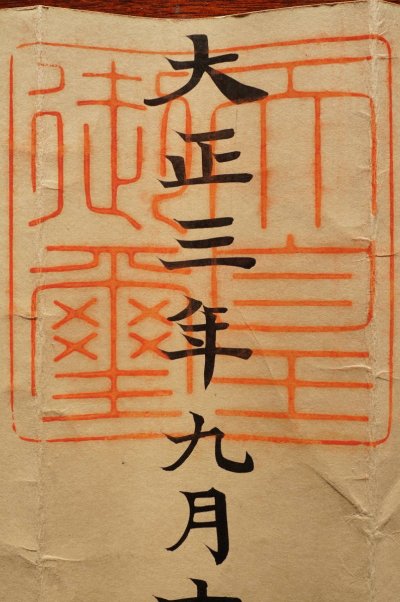 大正三年九月
天皇
御璽